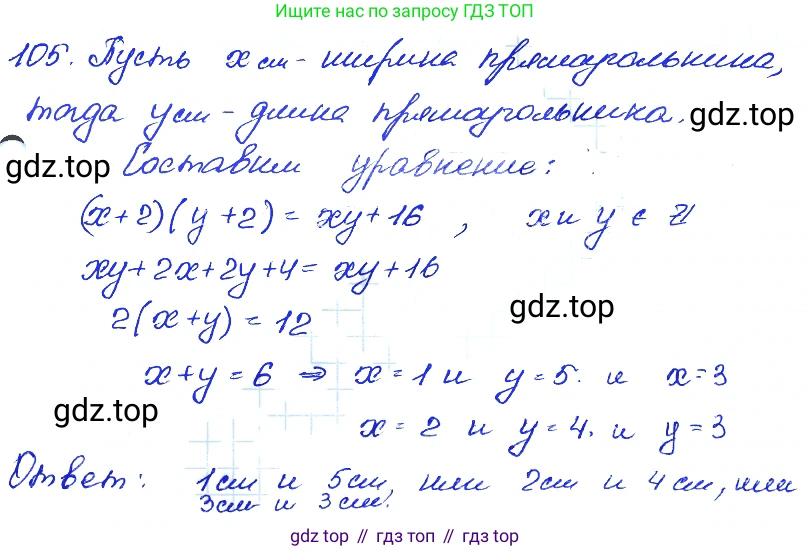 Ищите нас по запросу ГДЗ ТОП
105. Пусть x см - ширина прямоугольника,
тогда y см - длина прямоугольника. gdz.top
gdz.top Составим уравнение:
(x+2)(y+2) = xy+16 , x и y ∈ Z
xy+2x+2y+4 = xy+16
2(x+y) = 12 gdz.top
x+y = 6 ⇒ x=1 и y=5. и x=3
gdz.top x=2 и y=4. и y=3
Ответ: 1см и 5см, или 2см и 4см, или
3см и 3см.
gdz.top // гдз топ // gdz.top // гдз топ // gdz.top